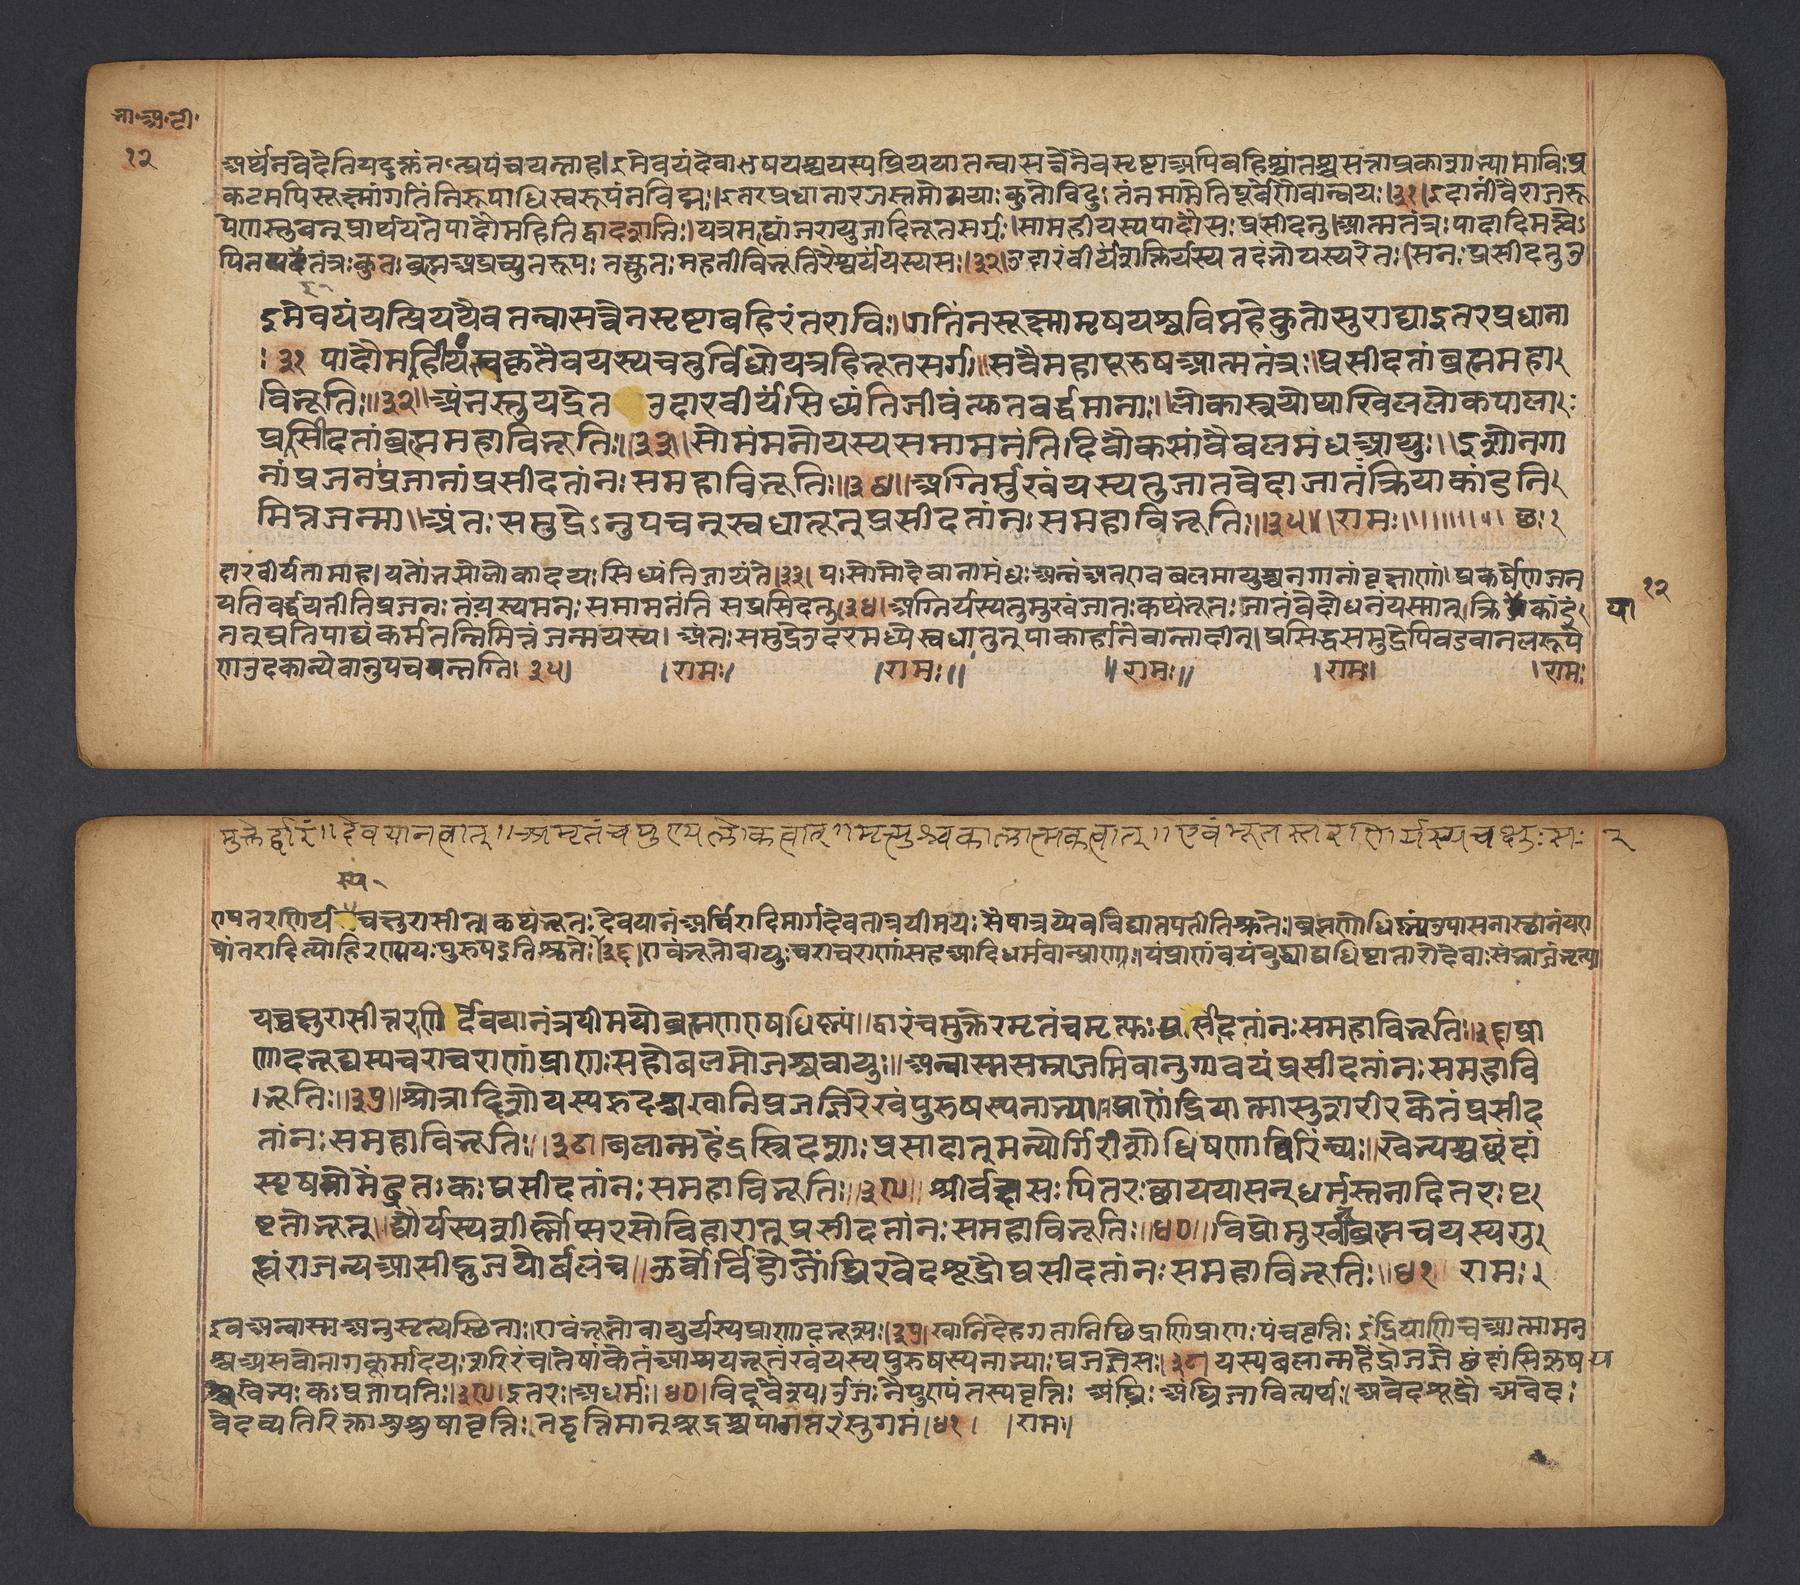 भा॰अ॰टी॰
१२
अर्थेनवेदेतियदुक्तंतत्प्रपंचयन्नाह। इमेवयंदेवाऋषयश्चयस्यप्रिययातन्वासत्वेनैवसृष्टाअपिबहिश्चांतश्चसत्ताप्रकाशाभ्यामाविःप्र
कटमपिसूक्ष्मांगतिंनिरूपाधिस्वरूपंनविद्मः। इतरप्रधानारजस्तमोमयाः कुतोविदुः तंनमामेतिपूर्वेणैवान्वयः।३१। इदानींवैराजरू
पेणस्तुवन्प्रार्थयते पादौमहीतिद्वादशभिः। यत्रमह्यांजरायुजादिभूतसर्गः। सामहीयस्यपादौसः प्रसीदतु। आत्मतंत्रः पादादिमत्वेऽ
पिनपरतंत्रः कुतः ब्रह्मअप्रच्युतरूपः तत्कुतः महतीविभूतिरैश्वर्ययस्यसः।३२। उदारंवीर्यंशक्तिर्यस्य तदंभोयस्यरेतः। सनः प्रसीदतु उ
इमेवयंयत्प्रिययैवतन्वासत्वेनसृष्टाबहिरंतराविः॥ गतिंनसूक्ष्मामृषयश्चविद्महेकुतोसुराद्याइतरप्रधाना
।३१ पादौमहीयंस्वकृतैवयस्यचतुर्विधोयत्रहिभूतसर्गः॥ सवैमहापूरुषआत्मतंत्रः प्रसीदतांब्रह्ममहा
विभूतिः॥३२॥ अंभस्तुयद्रेत उदारवीर्यंसिध्यंतिजीवंत्युतवर्द्धमानाः॥ लोकास्त्रयोथाखिललोकपालाः
प्रसीदतांब्रह्ममहाविभूतिः॥३३॥ सोमंमनोयस्यसमामनंतिदिवौकसांवैबलमंधआयुः॥ ईशोनगा
नांप्रजनःप्रजानांप्रसीदतांनः समहाविभूतिः॥३४॥ अग्निर्मुखंयस्यतुजातवेदाजातंक्रियाकांडनि
मित्तजन्मा॥ अंतः समुद्रेऽनुपचन्स्वधातून्प्रसीदतांनः समहाविभूतिः॥३५॥ रामः॥॥॥॥॥ छः
दारवीर्यतामाह। यतोंभसोलोकादयः सिध्यंतिजायंते।३३। यः सोमोदेवानामंधः अन्नंअतएवबलमायुश्चनगानांवृक्षाणां। प्रकर्षेणजन
यतिवर्द्धयतीतिप्रजनः तंयस्यमनः समामनंति सप्रसिदतु।३४। अग्निर्यस्यतुमुखंजातः कथंभूतः जातंवेदोधनंयस्मात्। क्रियाकांडं या १२
तत्प्रतिपाद्यंकर्मतन्निमित्तंजन्मयस्य। अंतः समुद्रेउदरमध्येस्वधातून्पाकार्हानेवान्नादीन्। प्रसिद्धसमुद्रेपिवडवानलरूपे
णउदकान्येवानुपचन्नग्नि। ३५। ।रामः। ।रामः॥ ॥रामः॥ ।रामः। ।रामः
मुक्तेर्द्वारं॥ देवयानत्वात्॥ अमृतंचपुण्यलोकत्वात्॥ मृत्युश्चकालात्मकत्वात्॥ एवंभूतस्तरणिर्यस्यचक्षुःसः २
स्य
एषतरणिर्य चक्षुरासीत्। कथंभूतः देवयानंअर्चिरादिमार्गदेवतात्रयीमयः सैषात्रय्येवविद्यातपतीतिश्रुतेः। ब्रह्मणोधिष्ण्यंउपासनास्थानंयए
षोंतरादित्योहिरण्मयः पुरुषइतिश्रुतेः।३६। एवंभूतोवायुः चराचराणांसहआदिधर्मवान्प्राणः। यंप्राणंवयंबुद्ध्याद्यधिष्टातारोदेवाः सम्राजंभृत्या
यच्चक्षुरासीत्तरणिर्देवयानंत्रयीमयोब्रह्मणएषधिष्ण्यं॥ द्वारंचमुक्तेरमृतंचमृत्युः प्रसीदतांनः समहाविभूतिः॥३६। प्रा
णादभूद्यस्यचराचराणांप्राणः सहोबलमोजश्चवायुः॥ अन्वास्मसम्राजमिवानुगावयंप्रसीदतांनः समहावि
भूतिः॥३७॥ श्रोत्राद्दिशोयस्यहृदश्चखानिप्रजज्ञिरेखंपुरुषस्यनाभ्याः॥ प्राणेंद्रियात्मासुशरीरकेतंप्रसीद
तांनः समहाविभूतिः॥३८॥ बलान्महेंद्रस्त्रिदशाः प्रसादात्मन्योर्गिरीशोधिषणाद्विरिंच्यः॥ खेभ्यश्चछंदां
स्यृषयोमेंढ्रतः कः प्रसीदतांनः समहाविभूतिः॥३९॥ श्रीर्वक्षसः पितरः छाययासन्धर्मस्तनादितरः पृ
ष्टतोभूत्॥ द्यौर्यस्यशीर्ष्णोप्सरसोविहारात्प्रसीदतांनः समहाविभूतिः॥४०॥ विप्रोमुखंब्रह्मचयस्यगु
ह्यंराजन्यआसीद्भुजयोर्बलंच॥ ऊर्वोर्विडोजोंघ्रिरवेदशूद्रौप्रसीदतांनः समहाविभूतिः॥४१ रामः।
इवअन्वास्मअनुसृत्यस्थिताः। एवंभूतोवायुर्यस्यप्राणादभूत्सः।३७। खानिदेहगतानिछिद्राणिप्राणः पंचवृत्तिः इंद्रियाणिचआत्मामन
श्चअसवोनागकूर्मादयः शरिरंच। तेषांकेतंआश्रयभूतंखंयस्यपुरुषस्यनाभ्याः प्रजज्ञेसः।३८। यस्यबलान्महेंद्रोजज्ञे छंदांसिऋषय
श्चखेभ्यः कः प्रजापतिः।३९। इतरः। अधर्मः।४०। विट्वैश्यः। ओजः नैपुण्यंतस्यवृत्तिः अंघ्रिः अंघ्रिजावित्यर्थः। अवेदशूद्रौ अवेदः
वेदव्यतिरिक्ताशुश्रुषावृत्तिः तद्वृत्तिमान्शूद्रश्च ।४१। ।रामः।